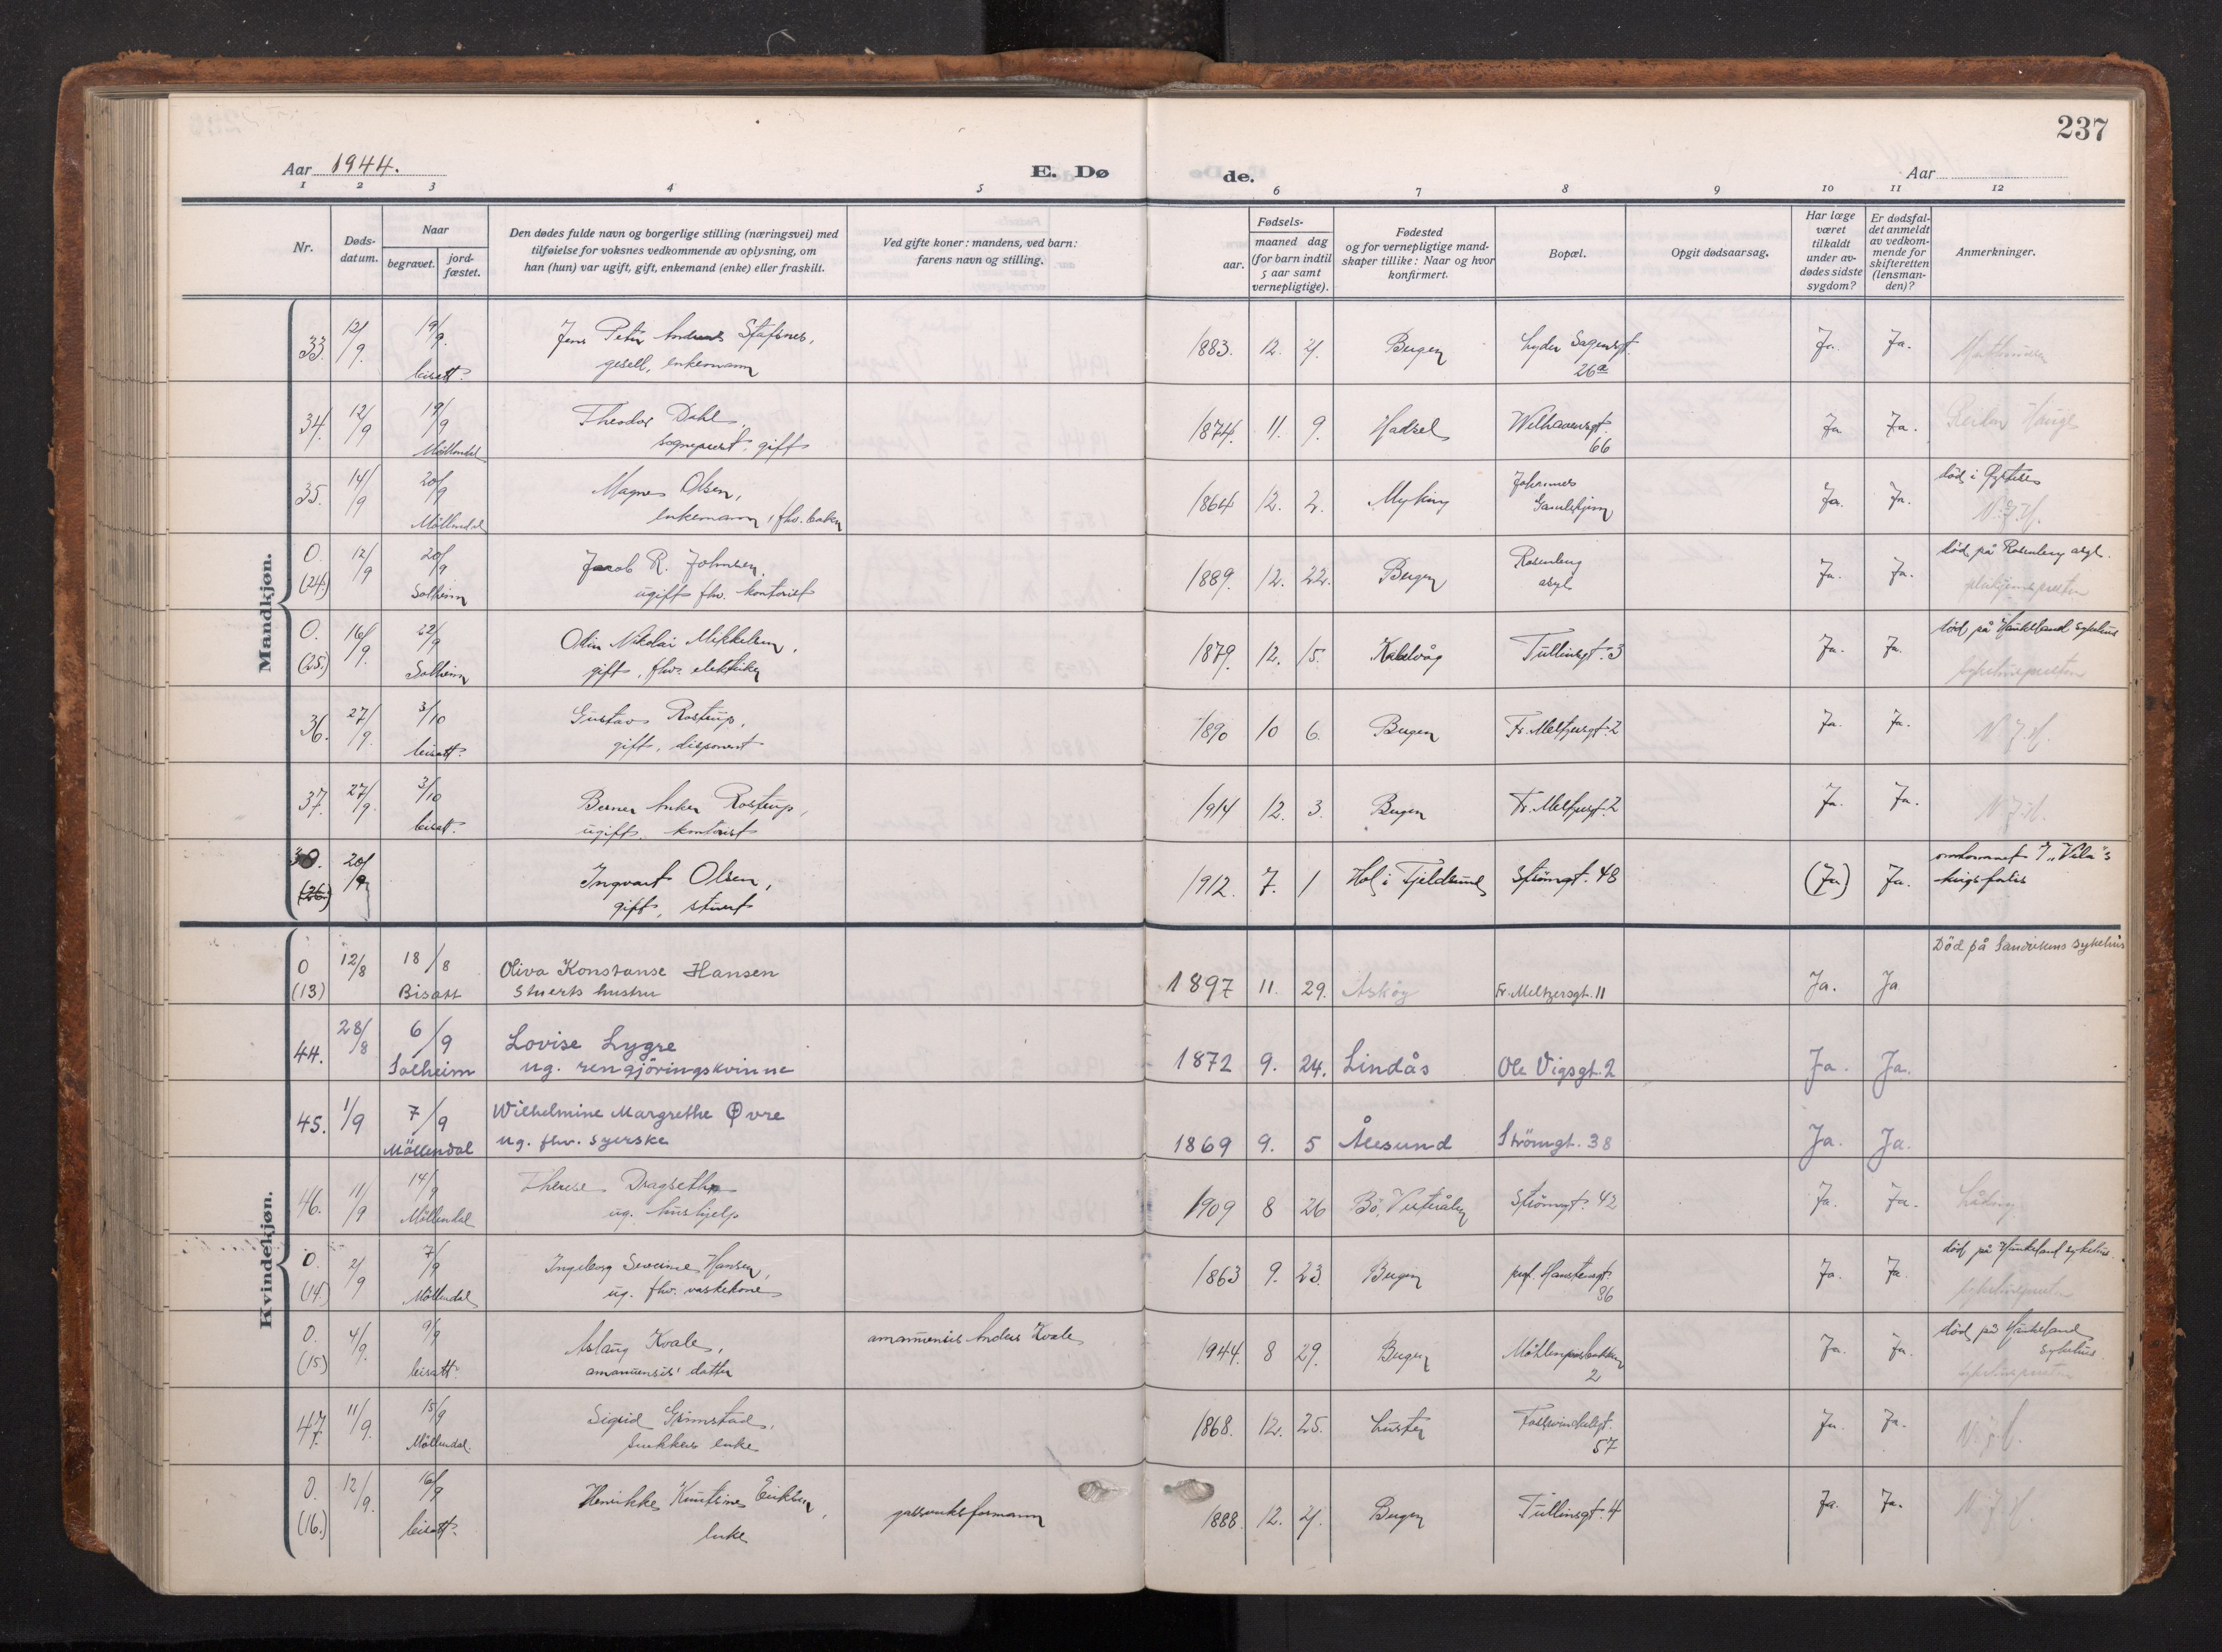 237
Aar 1944.
E. Dø
de.
Aar
1 2 3 4 5 6 7 8 9 10 11 12
Nr.
Døds-
datum.
Naar
begravet.
jord-
fæstet.
Den dødes fulde navn og borgerlige stilling (næringsvei) med
tilføielse for voksnes vedkommende av oplysning, om
han (hun) var ugift, gift, enkemand (enke) eller fraskilt.
Ved gifte koner: mandens, ved barn:
farens navn og stilling.
Fødsels-
aar.
maaned dag
(for barn indtil
5 aar samt
vernepligtige).
Fødested
og for vernepligtige mand-
skaper tillike: Naar og hvor
konfirmert.
Bopæl.
Opgit dødsaarsag.
Har læge
været
tilkaldt
under av-
dødes sidste
sygdom?
Er dødsfal-
det anmeldt
av vedkom-
mende for
skifteretten
(lensman-
den)?
Anmerkninger.
Mandkjøn.
33. 12/9. 19/9. Jens Peter Andreas 1883. 12. Bergen Lyder Sagensgt. Ja. Ja.
bisatt. gesell, enkemann 26a
34. 12/9 19/9 Theodor Dahl 1874. 11. 9. Hadsel Welhavensgt. Ja Ja.
Möllendal sogneprest, gift 66
35. 14/9 20/9 Magnus Olsen, 1864 12. 2. Myking Johannes Ja. Ja. död i
Möllendal enkemann, fhv. N.J.H.
O. 12/9 20/9 Jacob R. Johnsen, 1889. 12. 22. Bergen Rosenberg Ja. Ja. död på Rosenberg asyl.
(24.) Solheim ugift fhv. kontorist asyl
O. 16/9. 22/9 Odin Nikolai Mikkelsen, 1879. 12. 15. Kalvåg Tullinsgt. 3 Ja. Ja. död på Haukeland sykehus
(25.) Solheim gift, fhv. elektriker sykehuspresten
36. 27/9. 3/10 Gustav Rostrup, 1890 10 6. Bergen Fr. Meltzersgt. 2 Ja. Ja. N.J.H.
bisatt. gift, disponent
37. 27/9. 3/10 Berner Anker Rostrup, 1914 12. 3. Bergen Fr. Meltzersgt. 2 Ja. Ja. N.J.H.
bisatt. ugift. kontorist
20/9 Ingvart Olsen, 1912. 7. 1 Hol i Tjeldsund Strömgt. 48 (Ja) Ja. omkommet
(26.) gift, stuert krigsforlis
Kvindekjøn.
O 12/8 18/8 Oliva Konstanse Hansen 1897 11. 29. Askøy Fr. Meltzersgt. 11 Ja. Ja Död på Sandvikens sykehus
(13) Bisatt Stuerts hustru
44. 28/8 6/9 Lovise Lygre 1872 9. 24. Lindås Ole Vigsgt. 2 Ja. Ja.
Solheim ug. rengjöringskvinne
45. 1/9 7/9 Wilhelmine Margrethe Øvre 1869 9. 5 Ålesund Strömgt. 38 Ja. Ja.
Möllendal ug. fhv. syerske
46. 11/9 14/9 Therese Dragseth 1909 8 26 Bö, Vesterålen Strömgt. 42 Ja. Ja.
Möllendal ug. hushjelp
O. 2/9 7/9 Ingeborg Severine Hansen, 1863 9. 23. Bergen prof. Hansteensgt. Ja. Ja. död på Haukeland sykehus.
(14) Möllendal ug. fhv. vaskekone 86 sykehuspresten
O. 4/9. 9/9 Aslaug Kvale, amanuensis Anders Kvale 1944. 8 29. Bergen Möhlenprisbakken Ja. Ja. död på Haukeland
(15) bisatt. amanuensis' datter 2 sykehus.
sykehuspresten
47. 11/9. 15/9 Sigrid Grimstad, 1868. 12. 25. Luster Fosswinckelsgt. Ja. Ja. N.J.H.
Möllendal. snekkers enke 57
O. 12/9. 16/9 Henrikke Eriksen, gassverksformann 1888. 12. Bergen Tullinsgt. 4 Ja. Ja. N.J.H.
(16.) bisatt. enke